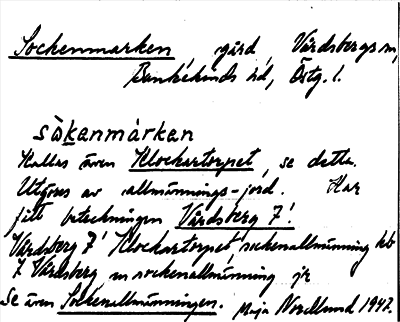 Sockenmarken, gård, Vårdsbergs sn,
Bankekinds hd, Östg. l.
sòkenmàrkan
Kallas även Klockartorpet, se detta.
Utgöres av allmännings-jord. Har
fått beteckningen Vårdsberg 7¹.
Vårdsberg 7¹ Klockartorpet, sockenallmänning
7 Vårdsberg sockenallmänning jr
Se även Sockenallmänningen. Maja Nordlund 1947.